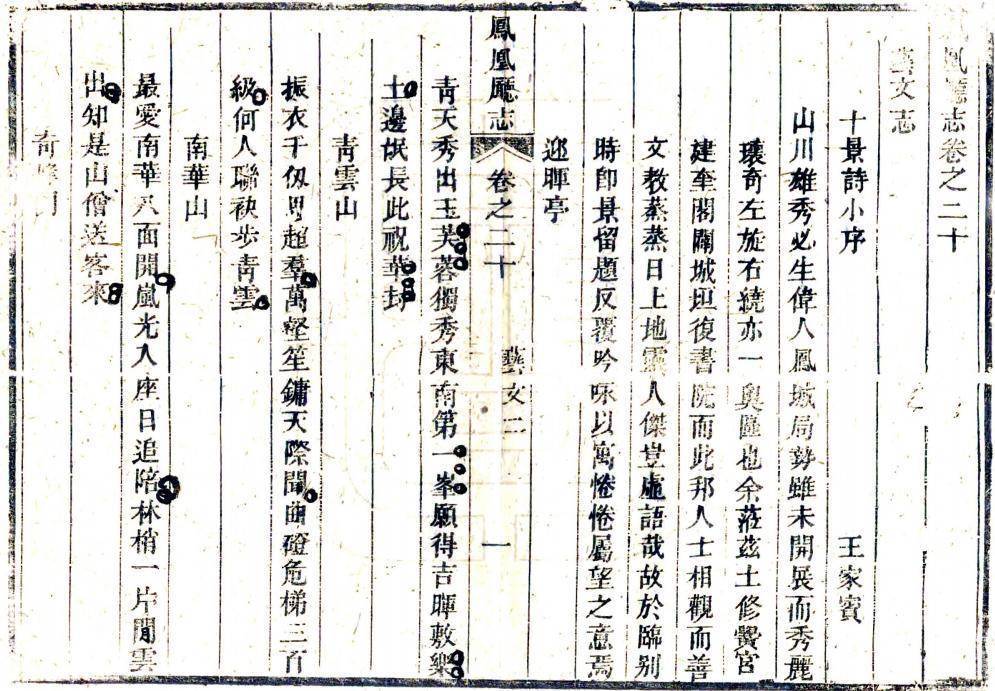 鳳凰廳志卷之二十
藝文志
十景詩小序
王家賓
山川雄秀必生偉人鳳城局勢雖未開展而秀麗
瓌奇左旋右繞亦一奧區也余蒞茲土修黌宮
建奎閣闢城垣復書院而此邦人士相觀而善
文教蒸蒸日上地靈人傑豈虛語哉故於臨別
時即景留題反覆吟咏以寓惓惓屬望之意焉
迎暉亭
鳳凰廳志
卷之二十
藝文二
一
青天秀出玉芙蓉獨秀東南第一峯願得吉暉敷樂
土邊氓長此祝華封
青雲山
振衣千仭思超羣萬壑笙鏞天際聞曲磴危梯三百
級何人聯袂步青雲
南華山
最愛南華八面開嵐光入座日追陪林梢一片閒雲
出知是山僧送客來
奇峯